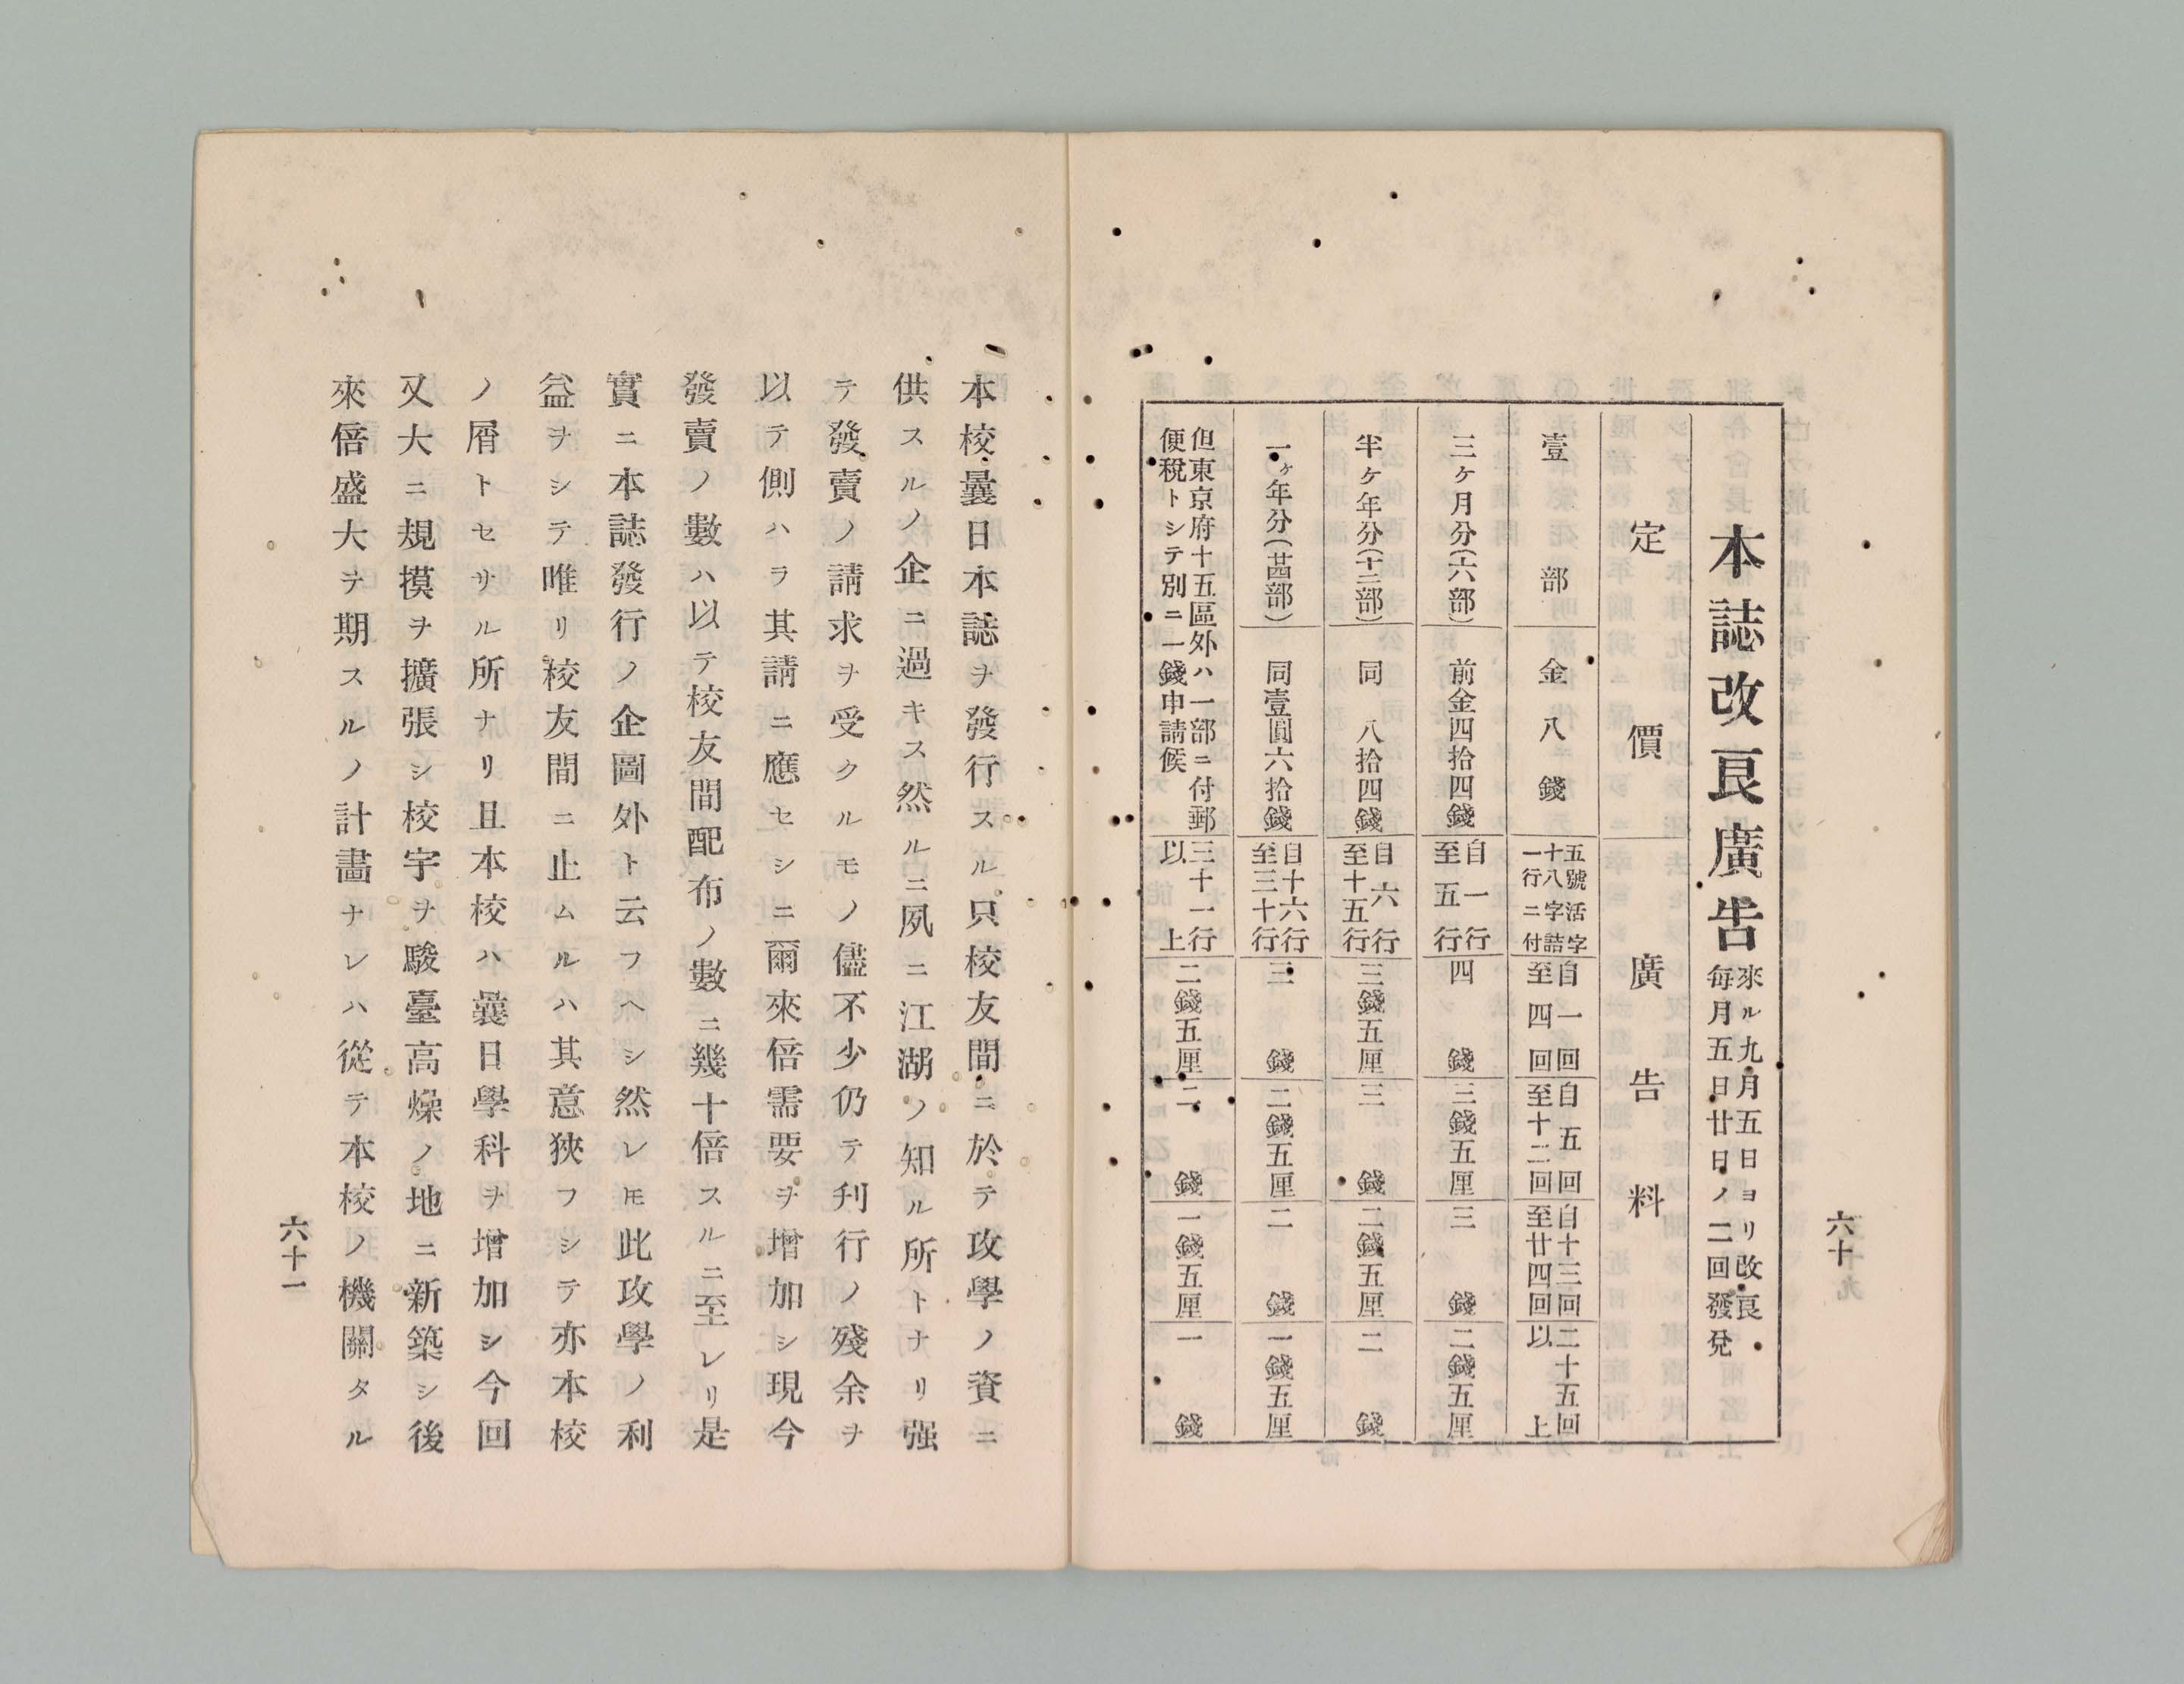 六十
本誌改良廣告
來ル九月五日ヨリ改良
毎月五日廿日ノ二回發兌
定價
廣告料
壹部
金八錢
五號活字
十八字詰
一行ニ付
自一回
至四回
自五回
至十二回
自十三回
至廿四回
二十五回
以上
三ヶ月分(六部)
前金四拾四錢
自一行
至五行
四錢
三錢五厘
三錢
二錢五厘
半ヶ年分(十二部)
同八拾四錢
自六行
至十五行
三錢五厘
三錢
二錢五厘
二錢
一ヶ年分(廿四部)
同壹圓六拾錢
自十六行
至三十行
三錢
二錢五厘
二錢
一錢五厘
但東京府十五區外ハ一部ニ付郵
便稅トシテ別ニ一錢申請候
三十一行
以上
二錢五厘
二錢
一錢五厘
一錢
本校曩日本誌ヲ發行スル只校友間ニ於テ攻學ノ資ニ
供スルノ企ニ過キス然ルニ夙ニ江湖ノ知ル所トナリ强
テ發賣ノ請求ヲ受クルモノ儘不少仍テ刋行ノ殘余ヲ
以テ側ハラ其請ニ應セシニ爾來倍需要ヲ增加シ現今
發賣ノ數ハ以テ校友間配布ノ數ニ幾十倍スルニ至レリ是
實ニ本誌發行ノ企圖外ト云フヘシ然レ𪜈此攻學ノ利
益ヲシテ唯リ校友間ニ止ムルハ其意狹フシテ亦本校
ノ屑トセサル所ナリ且本校ハ曩日學科ヲ增加シ今回
又大ニ規摸ヲ擴張シ校宇ヲ駿臺高燥ノ地ニ新築シ後
來倍盛大ヲ期スルノ計畵ナレハ從テ本校ノ機關タル
六十一